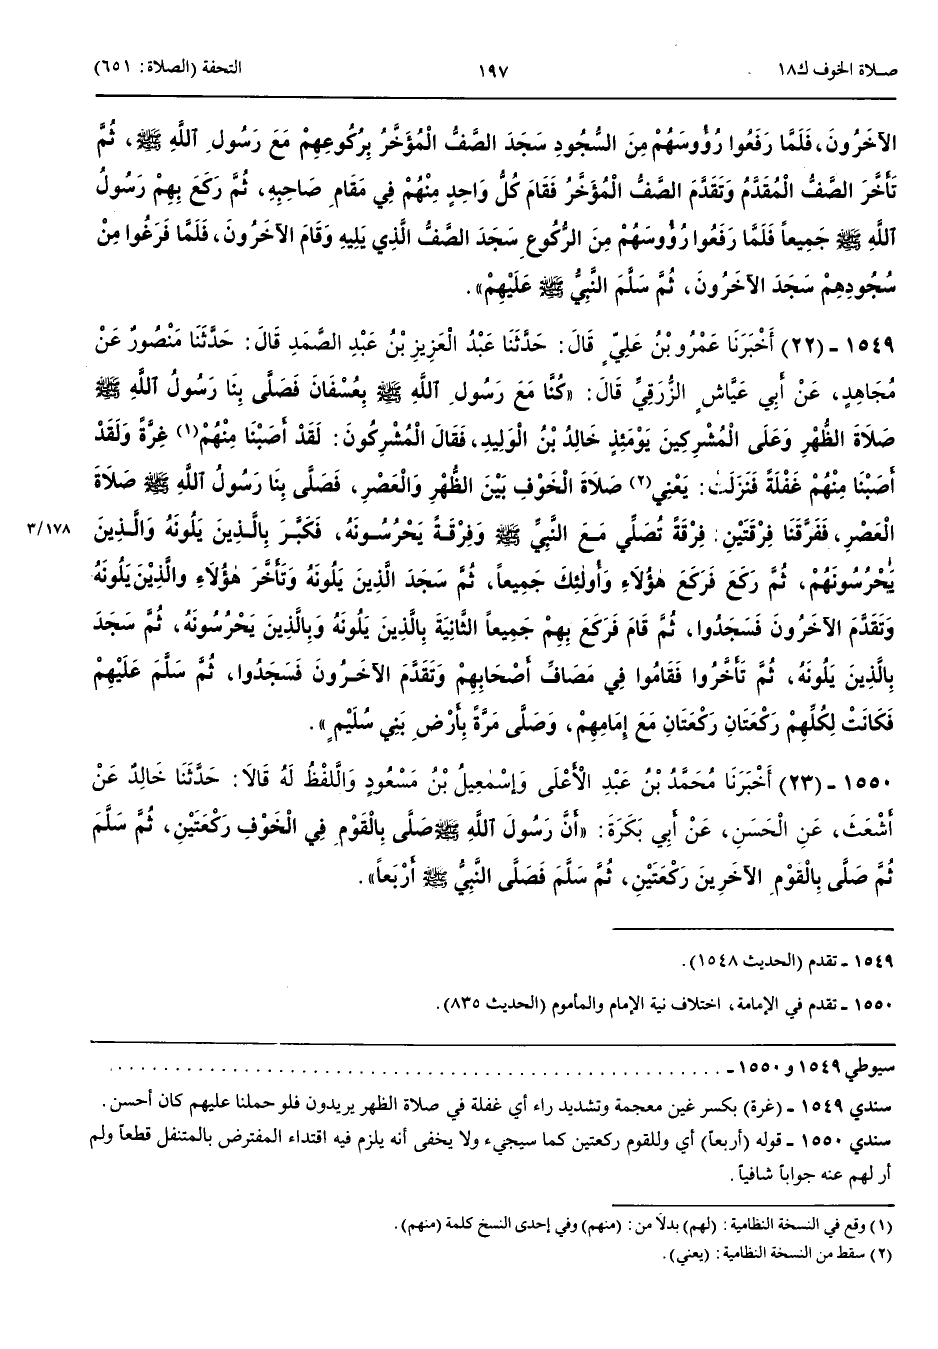 صـلاة الخوف ك١٨ ١٩٧ التحفة (الصلاة: ٦٥١)
الآخَرُونَ، فَلَمَّا رَفَعُوا رُؤُوسَهُمْ مِنَ السُّجُودِ سَجَدَ الصَّفُّ الْمُؤَخَّرُ بِرُكُوعِهِمْ مَعَ رَسُولِ ٱللَّهِ ﷺ، ثُمَّ
تَأَخَّرَ الصَّفُّ الْمُقَدَّمُ وَتَقَدَّمَ الصَّفُّ الْمُؤَخَّرُ فَقَامَ كُلُّ وَاحِدٍ مِنْهُمْ فِي مَقَامِ صَاحِبِهِ، ثُمَّ رَكَعَ بِهِمْ رَسُولُ
ٱللَّهِ ﷺ جَمِيعاً فَلَمَّا رَفَعُوا رُؤُوسَهُمْ مِنَ الرُّكُوعِ سَجَدَ الصَّفُّ الَّذِي يَلِيهِ وَقَامَ الآخَرُونَ، فَلَمَّا فَرَغُوا مِنْ
سُجُودِهِمْ سَجَدَ الآخَرُونَ، ثُمَّ سَلَّمَ النَّبِيُّ ﷺ عَلَيْهِمْ».
١٥٤٩ ـ (٢٢) أَخْبَرَنَا عَمْرُو بْنُ عَلِيٍّ قَالَ: حَدَّثَنَا عَبْدُ الْعَزِيزِ بْنُ عَبْدِ الصَّمَدِ قَالَ: حَدَّثَنَا مَنْصُورٌ عَنْ
مُجَاهِدٍ، عَنْ أَبِي عَيَّاشٍ الزُّرَقِيِّ قَالَ: «كُنَّا مَعَ رَسُولِ ٱللَّهِ ﷺ بِعُسْفَانَ فَصَلَّى بِنَا رَسُولُ ٱللَّهِ ﷺ
صَلَاةَ الظُّهْرِ وَعَلَى الْمُشْرِكِينَ يَوْمَئِذٍ خَالِدُ بْنُ الْوَلِيدِ، فَقَالَ الْمُشْرِكُونَ: لَقَدْ أَصَبْنَا مِنْهُمْ(١) غِرَّةً وَلَقَدْ
أَصَبْنَا مِنْهُمْ غَفْلَةً فَنَزَلَتْ: يَعْنِي(٢) صَلَاةَ الْخَوْفِ بَيْنَ الظُّهْرِ وَالْعَصْرِ، فَصَلَّى بِنَا رَسُولُ ٱللَّهِ ﷺ صَلَاةَ
الْعَصْرِ، فَفَرَّقَنَا فِرْقَتَيْنِ: فِرْقَةً تُصَلِّي مَعَ النَّبِيِّ ﷺ وَفِرْقَةً يَحْرُسُونَهُ، فَكَبَّرَ بِالَّذِينَ يَلُونَهُ وَالَّذِينَ ٣/١٧٨
يَحْرُسُونَهُمْ، ثُمَّ رَكَعَ فَرَكَعَ هٰؤُلَاءِ وَأُولٰئِكَ جَمِيعاً، ثُمَّ سَجَدَ الَّذِينَ يَلُونَهُ وَتَأَخَّرَ هٰؤُلَاءِ والَّذِيْنَ يَلُونَهُ
وَتَقَدَّمَ الآخَرُونَ فَسَجَدُوا، ثُمَّ قَامَ فَرَكَعَ بِهِمْ جَمِيعاً الثَّانِيَةَ بِالَّذِينَ يَلُونَهُ وَبِالَّذِينَ يَحْرُسُونَهُ، ثُمَّ سَجَدَ
بِالَّذِينَ يَلُونَهُ، ثُمَّ تَأَخَّرُوا فَقَامُوا فِي مَصَافِّ أَصْحَابِهِمْ وَتَقَدَّمَ الآخَرُونَ فَسَجَدُوا، ثُمَّ سَلَّمَ عَلَيْهِمْ
فَكَانَتْ لِكُلِّهِمْ رَكْعَتَانِ رَكْعَتَانِ مَعَ إِمَامِهِمْ، وَصَلَّى مَرَّةً بِأَرْضِ بَنِي سُلَيْمٍ».
١٥٥٠ ـ (٢٣) أَخْبَرَنَا مُحَمَّدُ بْنُ عَبْدِ الْأَعْلَى وَإِسْمٰعِيلُ بْنُ مَسْعُودٍ وَاللَّفْظُ لَهُ قَالَا: حَدَّثَنَا خَالِدٌ عَنْ
أَشْعَثَ، عَنِ الْحَسَنِ، عَنْ أَبِي بَكَرَةَ: «أَنَّ رَسُولَ ٱللَّهِ ﷺ صَلَّى بِالْقَوْمِ فِي الْخَوْفِ رَكْعَتَيْنِ، ثُمَّ سَلَّمَ
ثُمَّ صَلَّى بِالْقَوْمِ الآخَرِينَ رَكْعَتَيْنِ، ثُمَّ سَلَّمَ فَصَلَّى النَّبِيُّ ﷺ أَرْبَعاً».
١٥٤٩ ـ تقدم (الحديث ١٥٤٨).
١٥٥٠ ـ تقدم في الإمامة، اختلاف نية الإمام والمأموم (الحديث ٨٣٥).
سيوطي ١٥٤٩ و ١٥٥٠ ـ . . . . . . . . . . . . . . . . . . . . . . . . . . . . . . . . . . . . . . . .
سندي ١٥٤٩ ـ (غرة) بكسر غين معجمة وتشديد راء أي غفلة في صلاة الظهر يريدون فلو حملنا عليهم كان أحسن.
سندي ١٥٥٠ ـ قوله (أربعاً) أي وللقوم ركعتين كما سيجيء ولا يخفى أنه يلزم فيه اقتداء المفترض بالمتنفل قطعاً ولم
أر لهم عنه جواباً شافياً.
(١) وقع في النسخة النظامية: (لهم) بدلاً من: (منهم) وفي إحدى النسخ كلمة (منهم).
(٢) سقط من النسخة النظامية: (يعني).